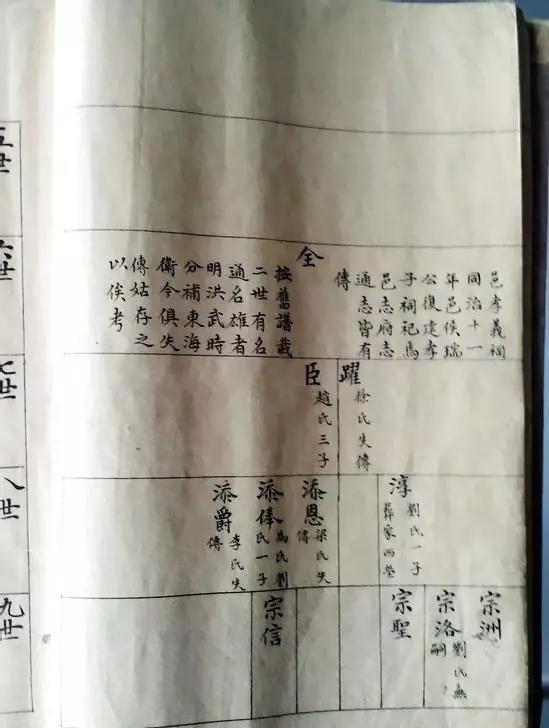 邑孝義祠
同治十一
年邑侯瑞
公復建孝
子祠祀馬
邑志府志
通志皆有
傳
全
按舊譜載
二世有名
通名雄者
明洪武時
分補東海
衛今俱失
傳姑存之
以俟考
躍
徐氏失傳
臣
趙氏三子
淳
劉氏一子
葬家西塋
添恩
梁氏失
傳
添俸
馬氏劉
氏一子
添爵
李氏失
傳
宗洲
宗洛
劉氏無
嗣
宗聖
宗信
五世
六世
七世
八世
九世